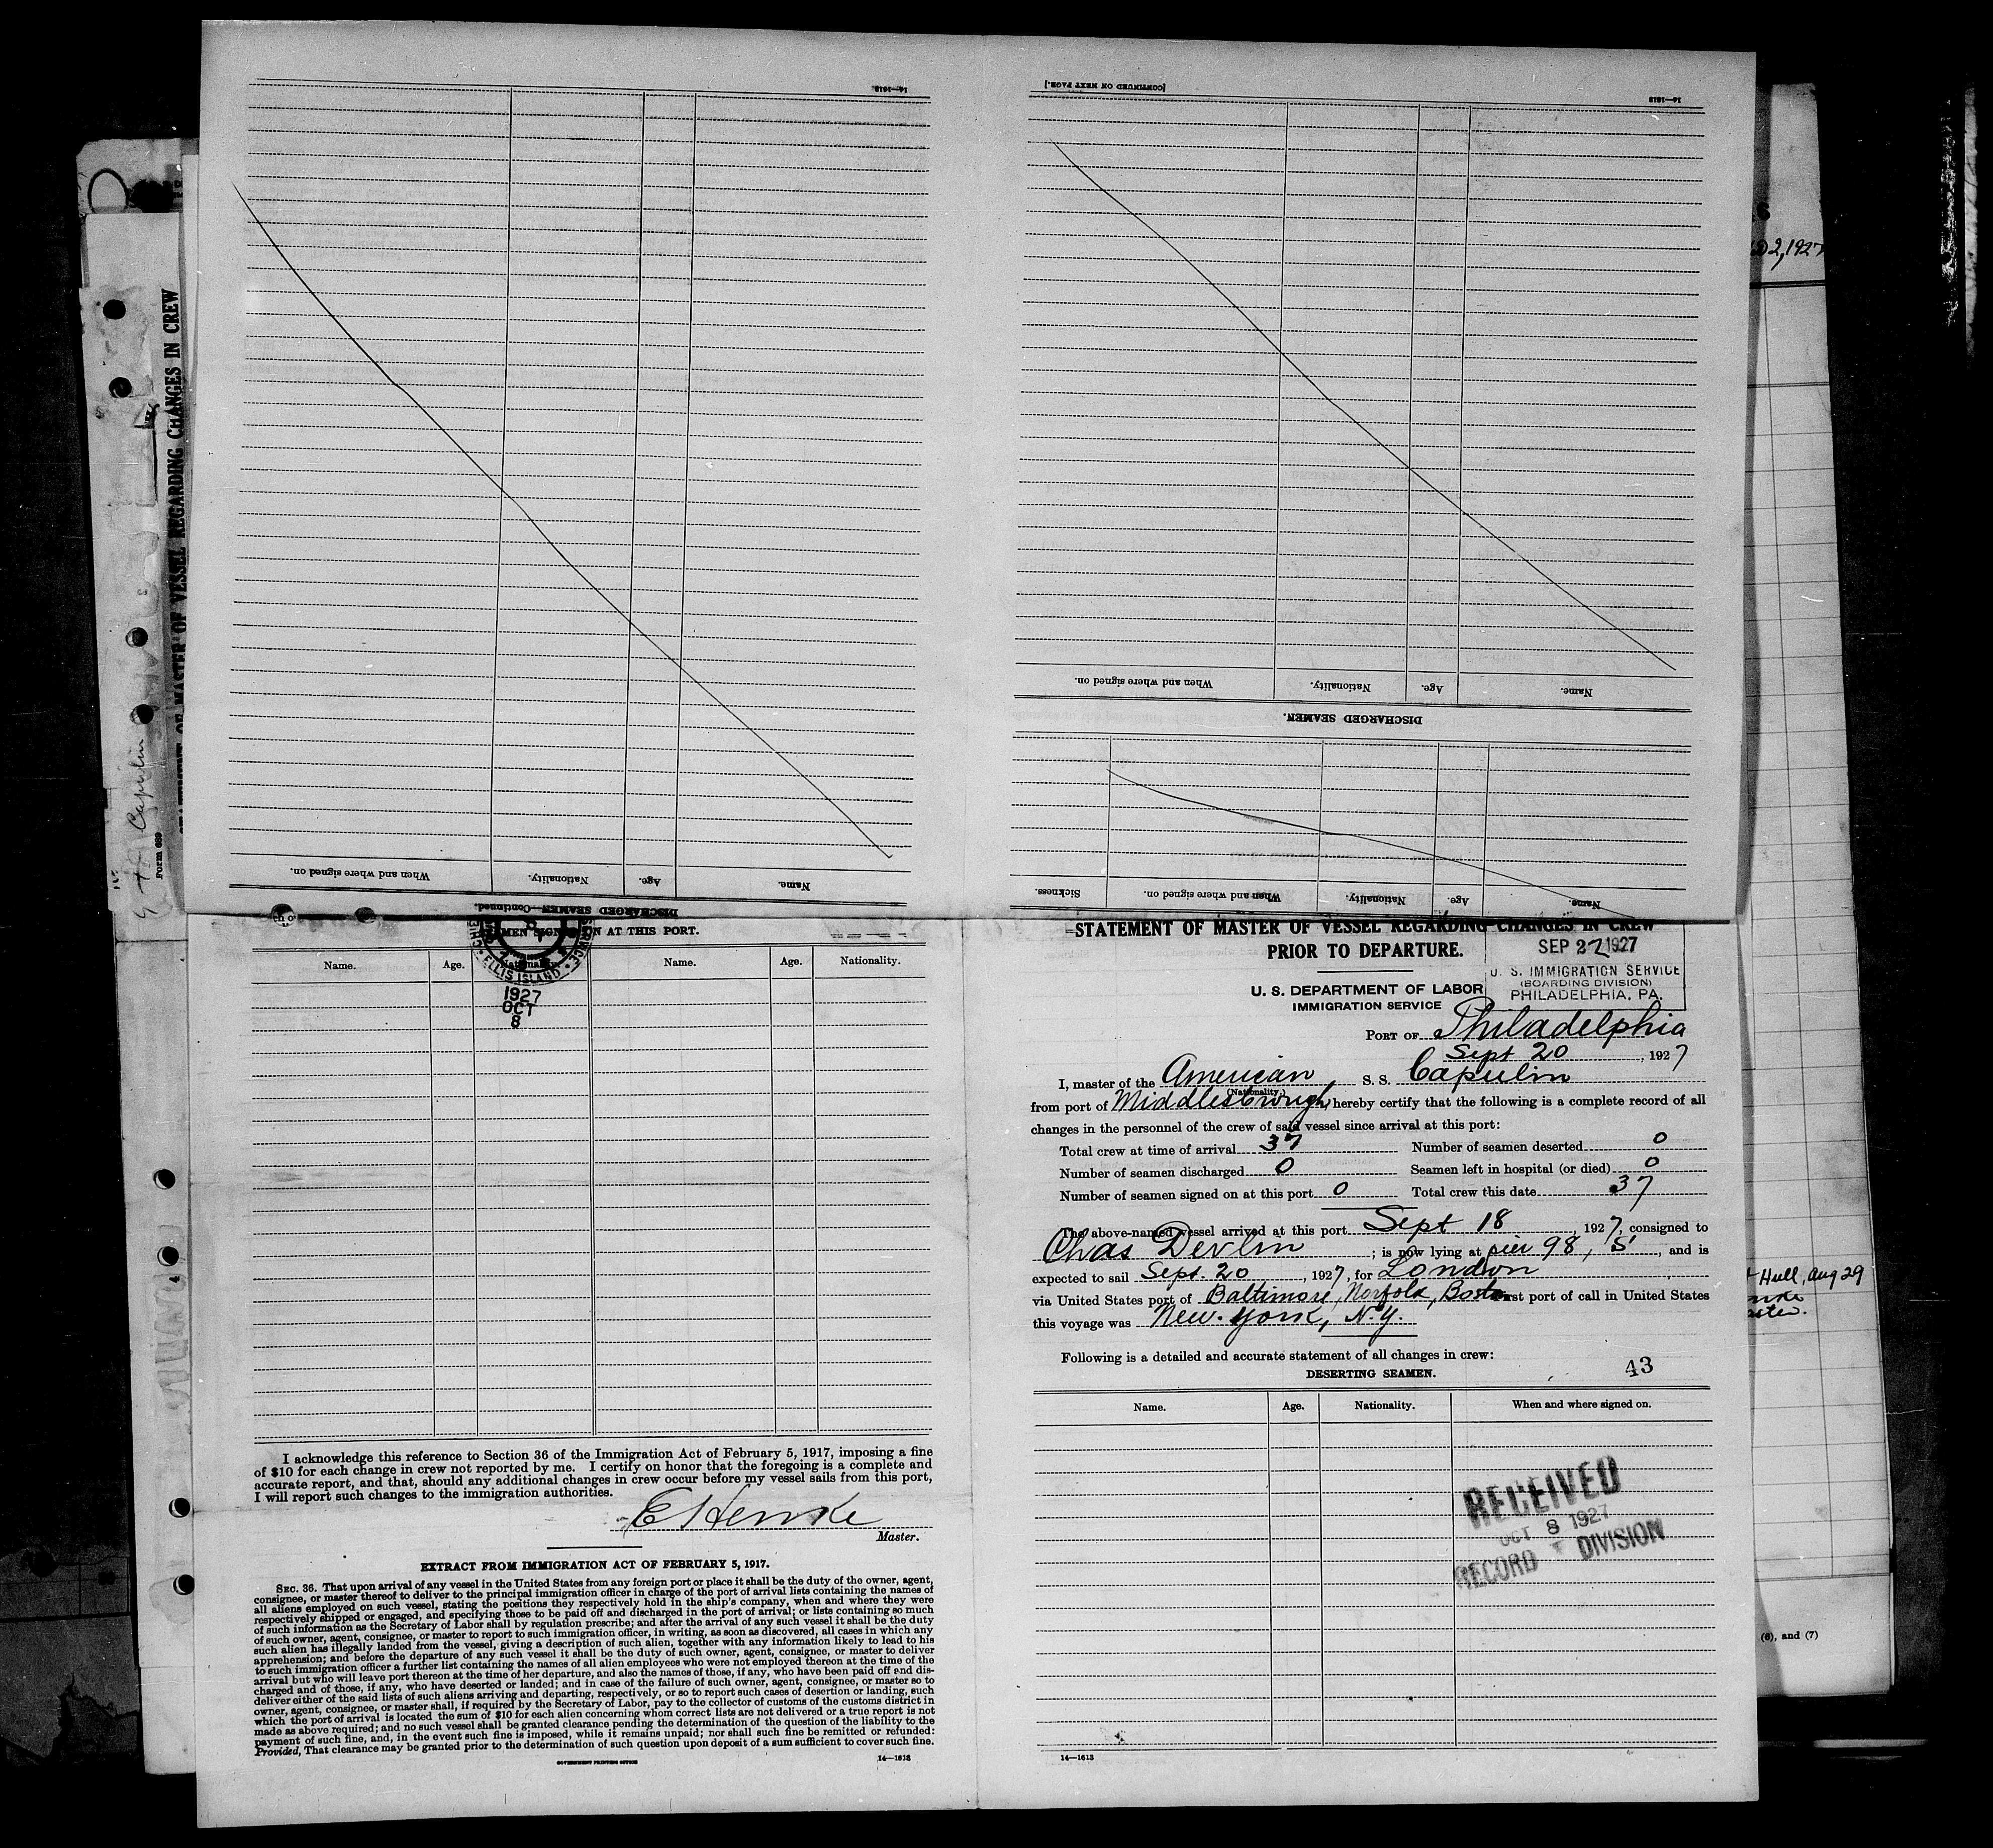 14—1613
[CONTINUED ON NEXT PAGE.]
14—1613
Name.
Age.
Nationality.
When and where signed on.
DISCHARGED SEAMEN—Continued.
Name.
Age.
Nationality.
When and where signed on.
DISCHARGED SEAMEN.
Name.
Age.
Nationality.
When and where signed on.
Sickness.
STATEMENT OF MASTER OF VESSEL REGARDING CHANGES IN CREW
Form 689
Capulin
SIGNED ON AT THIS PORT.
Name. Age. Nationality. Name. Age. Nationality.
ELLIS ISLAND
1927
OCT
8
I acknowledge this reference to Section 36 of the Immigration Act of February 5, 1917, imposing a fine
of $10 for each change in crew not reported by me. I certify on honor that the foregoing is a complete and
accurate report, and that, should any additional changes in crew occur before my vessel sails from this port,
I will report such changes to the immigration authorities.
E Henke
Master.
EXTRACT FROM IMMIGRATION ACT OF FEBRUARY 5, 1917.
SEC. 36. That upon arrival of any vessel in the United States from any foreign port or place it shall be the duty of the owner, agent,
consignee, or master thereof to deliver to the principal immigration officer in charge of the port of arrival lists containing the names of
all aliens employed on such vessel, stating the positions they respectively hold in the ship's company, when and where they were
respectively shipped or engaged, and specifying those to be paid off and discharged in the port of arrival; or lists containing so much
of such information as the Secretary of Labor shall by regulation prescribe; and after the arrival of any such vessel it shall be the duty
of such owner, agent, consignee, or master to report to such immigration officer, in writing, as soon as discovered, all cases in which any
such alien has illegally landed from the vessel, giving a description of such alien, together with any information likely to lead to his
apprehension; and before the departure of any such vessel it shall be the duty of such owner, agent, consignee, or master to deliver
to such immigration officer a further list containing the names of all alien employees who were not employed thereon at the time of the
arrival but who will leave port thereon at the time of her departure, and also the names of those, if any, who have been paid off and dis-
charged and of those, if any, who have deserted or landed; and in case of the failure of such owner, agent, consignee, or master so to
deliver either of the said lists of such aliens arriving and departing, respectively, or so to report such cases of desertion or landing, such
owner, agent, consignee, or master shall, if required by the Secretary of Labor, pay to the collector of customs of the customs district in
which the port of arrival is located the sum of $10 for each alien concerning whom correct lists are not delivered or a true report is not
made as above required; and no such vessel shall be granted clearance pending the determination of the question of the liability to the
payment of such fine, and, in the event such fine is imposed, while it remains unpaid; nor shall such fine be remitted or refunded:
Provided, That clearance may be granted prior to the determination of such question upon deposit of a sum sufficient to cover such fine.
GOVERNMENT PRINTING OFFICE 14—1613
STATEMENT OF MASTER OF VESSEL REGARDING CHANGES IN CREW
PRIOR TO DEPARTURE.
SEP 27 1927
U. S. IMMIGRATION SERVICE
(BOARDING DIVISION)
PHILADELPHIA, PA.
U. S. DEPARTMENT OF LABOR
IMMIGRATION SERVICE
PORT OF Philadelphia
Sept 20, 1927
I, master of the American S. S. Capulin
(Nationality.)
from port of Middlesbrough, hereby certify that the following is a complete record of all
changes in the personnel of the crew of said vessel since arrival at this port:
Total crew at time of arrival 37 Number of seamen deserted 0
Number of seamen discharged 0 Seamen left in hospital (or died) 0
Number of seamen signed on at this port 0 Total crew this date 37
The above-named vessel arrived at this port Sept 18, 1927, consigned to
Chas Devlin; is now lying at pier 98, S, and is
expected to sail Sept. 20, 1927, for London
via United States port of Baltimore, Norfolk, Boston port of call in United States
this voyage was New York, N.Y.
Following is a detailed and accurate statement of all changes in crew:
43
DESERTING SEAMEN.
Name. Age. Nationality. When and where signed on.
RECEIVED
OCT 8 1927
RECORD DIVISION
14—1613
2, 1927
Hull, Aug 29
(6), and (7)